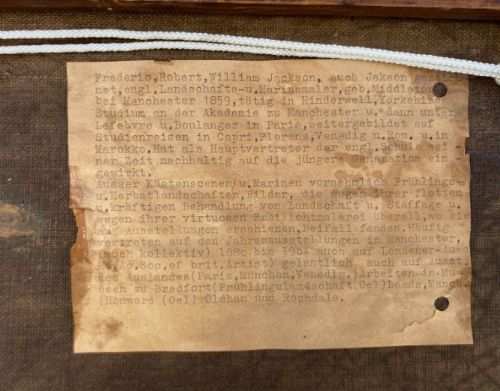 Frederic,Robert,William Jackson, auch Jakson gezeich
net,engl.Landschafts-u.Marinemaler,geb.Middleton
bei Manchester 1859,tätig in Hinderwell,Yorkshire
Studium an der Akademie zu Manchester u. dann unter
Lefebvre u.Boulanger in Paris,weitergebildet auf
Studienreisen in Capri,Florenz,Venedig u.Rom, u.in
Marokko.Hat als Hauptvertreter der engl.Schule sei -
ner Zeit nachhaltig auf die jüngere Generation ein -
gewirkt.
Ausser Küstenscenen u.Marinen vornehmlich Frühlings-
u.Herbstlandschaften,Bilder, die wegen ihrer flotten
u.kräftigen Behandlung von Landschaft u. Staffage u.
wegen ihrer virtuosen Freilichtmalerei überall,wo sie
auf Ausstellungen erschienen,Beifall fanden.Häufig
vertreten auf den Jahresausstellungen in Manchester,
(auch kollektiv) 1880 bis 1904 auch auf Londoner Aus
Soc.of brit.Artist) gelentlich auch auf Ausst.
des Auslandes(Paris,München,Venedig.)Arbeiten in Mu-
seen zu Bredfort(Frühlingslandschaft Oel)Leeds,Manch.
(Homward (Oel) Oldham und Rochdale.